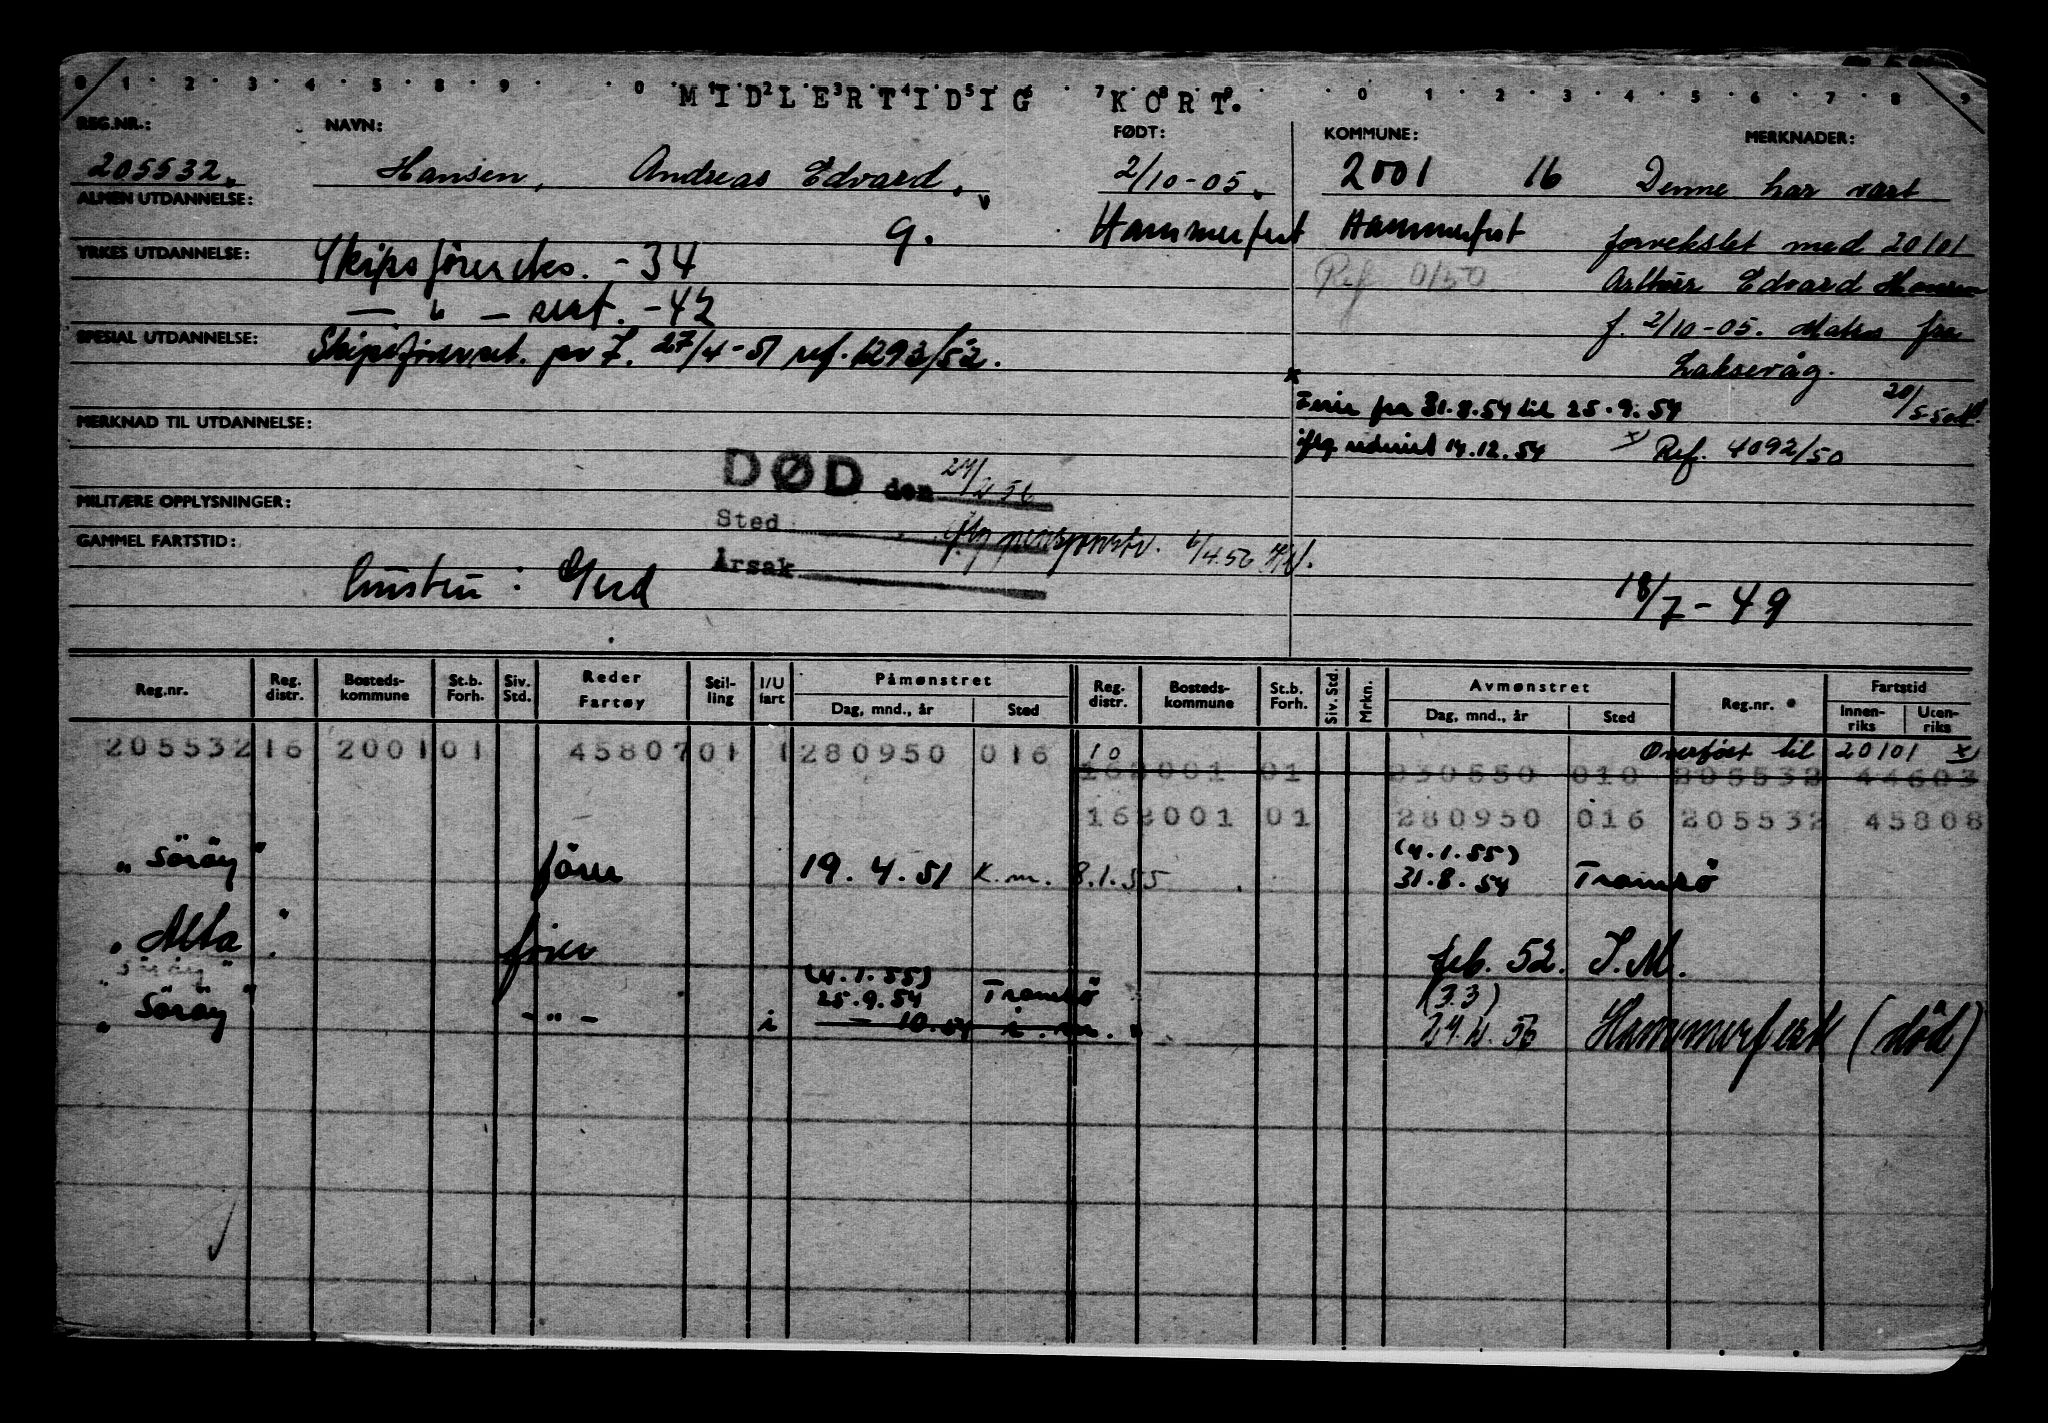 0 1 2 3 4 5 8 9 0 1 2 3 4 5 6 7 8 9 0 1 2 3 4 5 6 7 8 9
MIDLERTIDIG KORT.
REG.NR.: NAVN: FØDT: KOMMUNE: MERKNADER:
205532. Hansen, Andreas Edvard. 2/10-05. 2001 16 Denne har vært
ALMEN UTDANNELSE: g. Hammerfest Hammerfest forvekslet med 20101
YRKES UTDANNELSE: Skipsförereks. -34 Ref 0/50 Arthur Edvard Hansen
— " — sert. -42 f. 2/10-05. Matros fra
SPESIAL UTDANNELSE: Skipsförersert. pr 7. 27/4-51 ref. 1293/52. Laksevåg.
Ferie fra 31.8.54 til 25.9.54
MERKNAD TIL UTDANNELSE: iflg 14.12.54 x) Ref. 4092/50
DØD den 24/2 56
MILITÆRE OPPLYSNINGER: Sted
GAMMEL FARTSTID: 6/4.56
Årsak
hustru: Gerd 18/7-49
Reg.nr. Reg. distr. Bosteds-kommune St.b. Forh. Siv. Std. Reder Fartøy Stil-ling I/U fart Påmønstret Dag, mnd., år Sted Reg. distr. Bosteds-kommune St.b. Forh. Siv. Std. Mrkn. Avmønstret Dag, mnd., år Sted Reg.nr. Fartstid Innen-riks Uten-riks
205532 16 2001 01 45807 01 1 280950 016 10 Overfört til 20101 x)
16 2001 01 030550 010 205532 44603
16 2001 01 280950 016 205532 45808
(4.1.55)
"Söröy" förer 19.4.51 K.m. 8.1.55 31.8.54 Tromsö
"Alta" förer feb. 52. I.M.
"Söröy" (4.1.55) (3.3)
25.9.54 Tromsö
"Söröy" -"- i — 10.54 i.m. 24.2.56 Hammerfest (död)